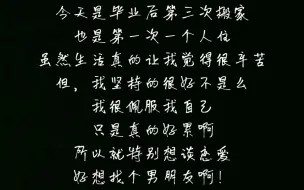 今天是毕业后第三次搬家
也是第一次一个人住
虽然生活真的让我觉得很辛苦
但，我坚持的很好不是么
我很佩服我自己
只是真的好累啊
所以就特别想谈恋爱
好想找个男朋友啊！